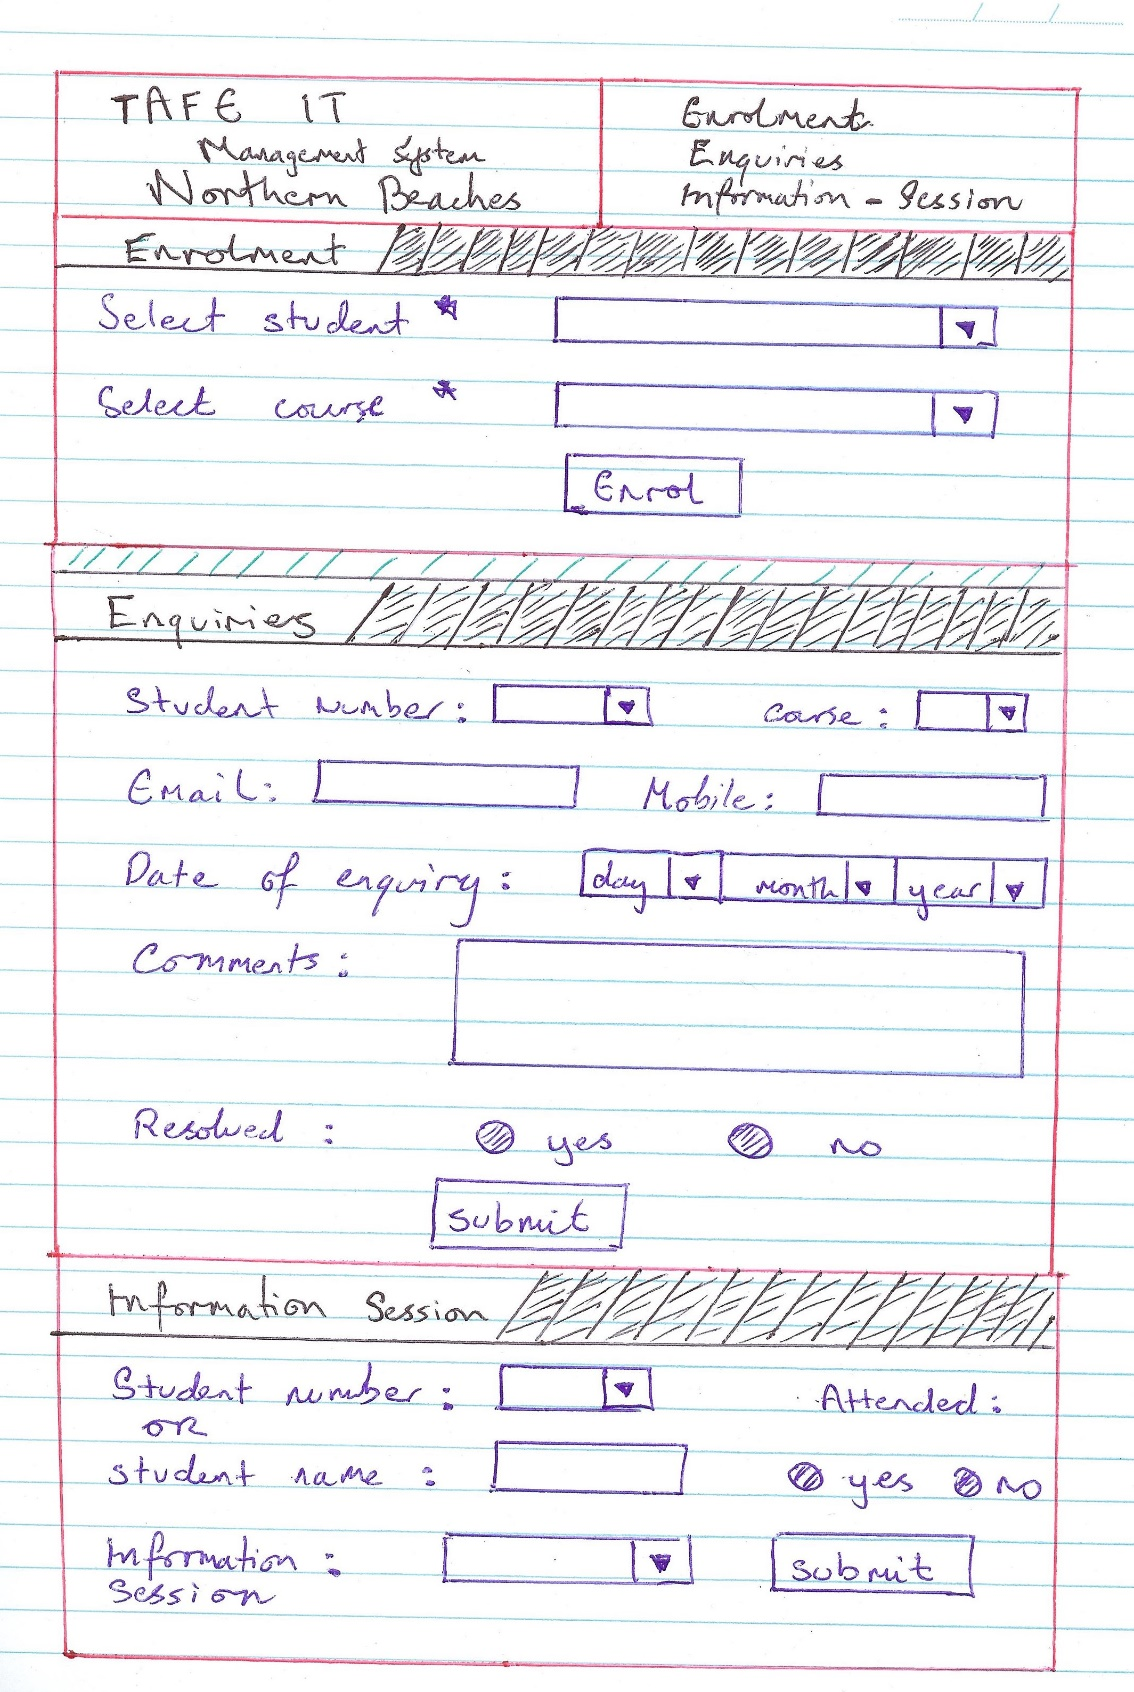 TAFE IT
Management System
Northern Beaches
Enrolment
Enquiries
Information - Session
Enrolment
Select student *
Select course *
Enrol
Enquiries
Student Number :
course :
Email:
Mobile:
Date of enquiry :
day
month
year
Comments :
Resolved :
yes
no
Submit
Information Session
Student number :
Attended:
OR
student name :
yes
no
Information :
session
submit